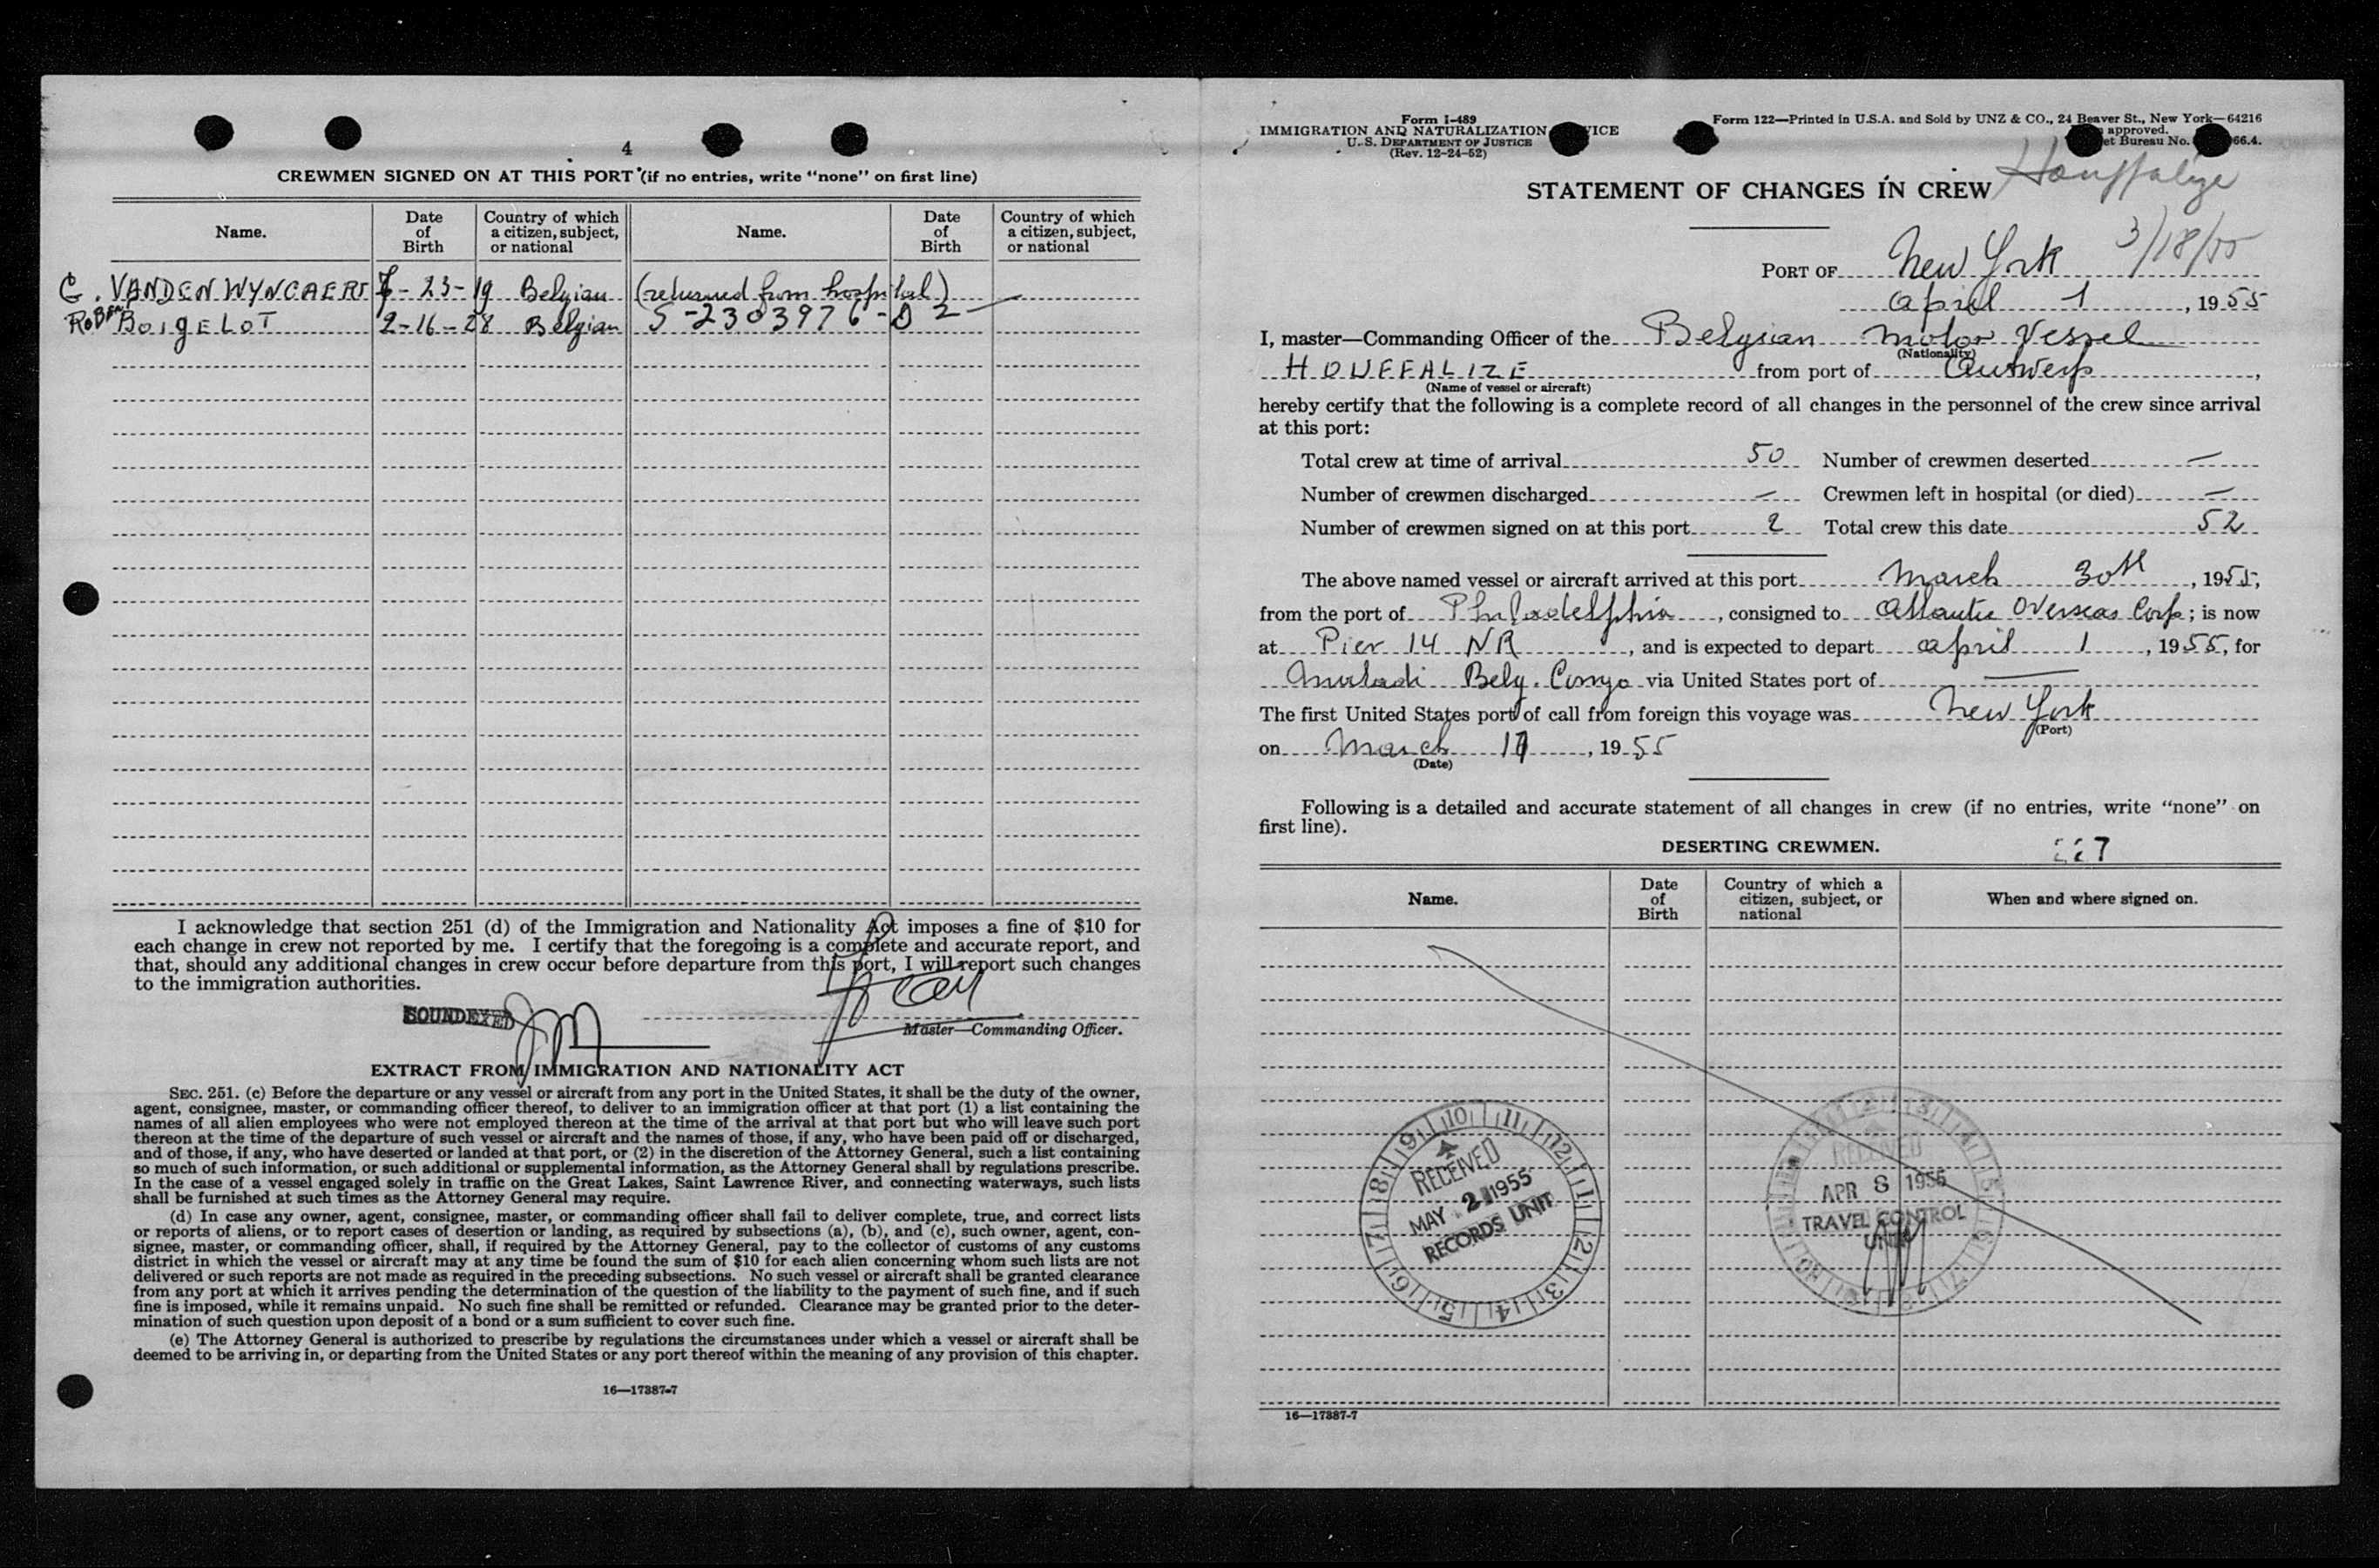 4
CREWMEN SIGNED ON AT THIS PORT (if no entries, write "none" on first line)
Name. Date of Birth Country of which a citizen, subject, or national Name. Date of Birth Country of which a citizen, subject, or national
G. VANDEN WYNGAERT 7-23-19 Belgian (returned from hospital)
ROBERT BOIGELOT 2-16-28 Belgian S-2303976-D2
I acknowledge that section 251 (d) of the Immigration and Nationality Act imposes a fine of $10 for
each change in crew not reported by me. I certify that the foregoing is a complete and accurate report, and
that, should any additional changes in crew occur before departure from this port, I will report such changes
to the immigration authorities.
SOUNDEXED
Master—Commanding Officer.
EXTRACT FROM IMMIGRATION AND NATIONALITY ACT
SEC. 251. (c) Before the departure or any vessel or aircraft from any port in the United States, it shall be the duty of the owner,
agent, consignee, master, or commanding officer thereof, to deliver to an immigration officer at that port (1) a list containing the
names of all alien employees who were not employed thereon at the time of the arrival at that port but who will leave such port
thereon at the time of the departure of such vessel or aircraft and the names of those, if any, who have been paid off or discharged,
and of those, if any, who have deserted or landed at that port, or (2) in the discretion of the Attorney General, such a list containing
so much of such information, or such additional or supplemental information, as the Attorney General shall by regulations prescribe.
In the case of a vessel engaged solely in traffic on the Great Lakes, Saint Lawrence River, and connecting waterways, such lists
shall be furnished at such times as the Attorney General may require.
(d) In case any owner, agent, consignee, master, or commanding officer shall fail to deliver complete, true, and correct lists
or reports of aliens, or to report cases of desertion or landing, as required by subsections (a), (b), and (c), such owner, agent, con-
signee, master, or commanding officer, shall, if required by the Attorney General, pay to the collector of customs of any customs
district in which the vessel or aircraft may at any time be found the sum of $10 for each alien concerning whom such lists are not
delivered or such reports are not made as required in the preceding subsections. No such vessel or aircraft shall be granted clearance
from any port at which it arrives pending the determination of the question of the liability to the payment of such fine, and if such
fine is imposed, while it remains unpaid. No such fine shall be remitted or refunded. Clearance may be granted prior to the deter-
mination of such question upon deposit of a bond or a sum sufficient to cover such fine.
(e) The Attorney General is authorized to prescribe by regulations the circumstances under which a vessel or aircraft shall be
deemed to be arriving in, or departing from the United States or any port thereof within the meaning of any provision of this chapter.
16—17387-7
Form I-489
IMMIGRATION AND NATURALIZATION VICE
U. S. DEPARTMENT OF JUSTICE
(Rev. 12-24-52)
Form 122—Printed in U.S.A. and Sold by UNZ & CO., 24 Beaver St., New York—64216
approved.
et Bureau No. 66.4.
STATEMENT OF CHANGES IN CREW Houffalize
3/18/55
PORT OF New York
April 1, 1955
I, master—Commanding Officer of the Belgian Motor Vessel
(Nationality)
HOUFFALIZE from port of Antwerp,
(Name of vessel or aircraft)
hereby certify that the following is a complete record of all changes in the personnel of the crew since arrival
at this port:
Total crew at time of arrival 50 Number of crewmen deserted —
Number of crewmen discharged — Crewmen left in hospital (or died) —
Number of crewmen signed on at this port 2 Total crew this date 52
The above named vessel or aircraft arrived at this port March 30th, 1955,
from the port of Philadelphia, consigned to Atlantic Overseas Corp; is now
at Pier 14 NR, and is expected to depart April 1, 1955, for
Belg. Congo via United States port of —
The first United States port of call from foreign this voyage was New York
(Port)
on March 17, 1955
(Date)
Following is a detailed and accurate statement of all changes in crew (if no entries, write "none" on
first line).
DESERTING CREWMEN. 227
Name. Date of Birth Country of which a citizen, subject, or national When and where signed on.
RECEIVED
MAY 2 1955
RECORDS UNIT
RECEIVED
APR 8 1955
TRAVEL CONTROL
UNIT
16—17387-7